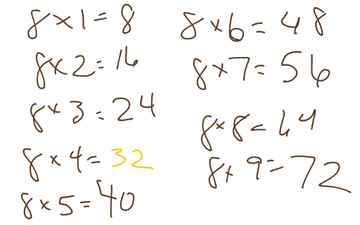 8×1=8
8×2=16
8×3=24
8×4=32
8×5=40
8×6=48
8×7=56
8×8=64
8×9=72